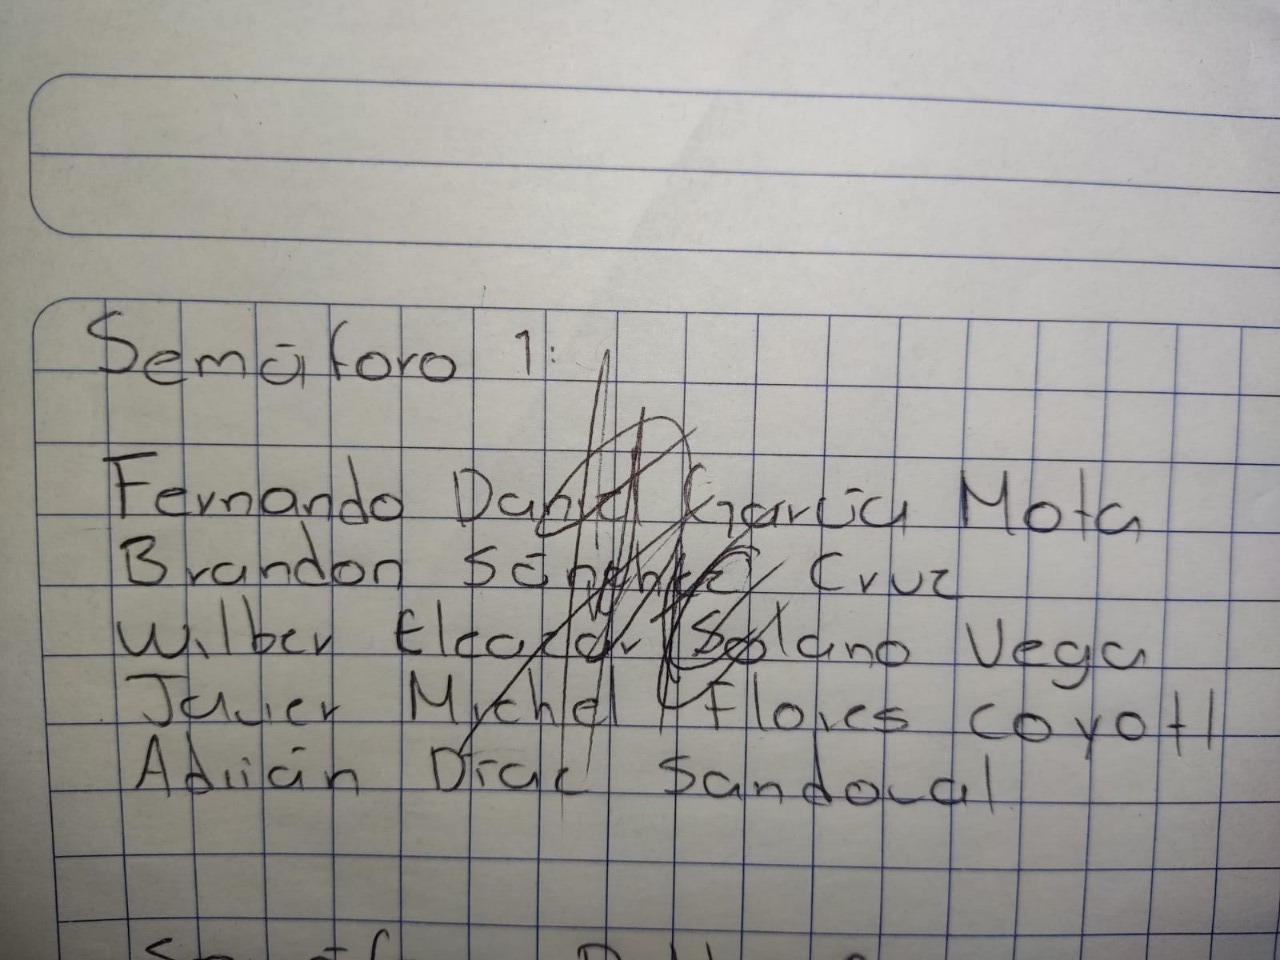 Semáforo 1:
Fernando Daniel García Mota
Brandon Sánchez Cruz
Wilber Eleazar Solano Vega
Javier Michel Flores Coyotl
Adrián Sandoval